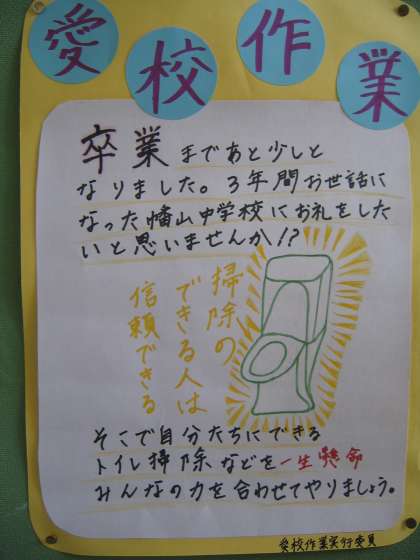 愛校作業
卒業まであと少しと
なりました。3年間お世話に
なった幡山中学校にお礼をした
いと思いませんか!?
掃除の
できる人は
信頼できる
そこで自分たちにできる
トイレ掃除などを一生懸命
みんなの力を合わせてやりましょう。
愛校作業実行委員